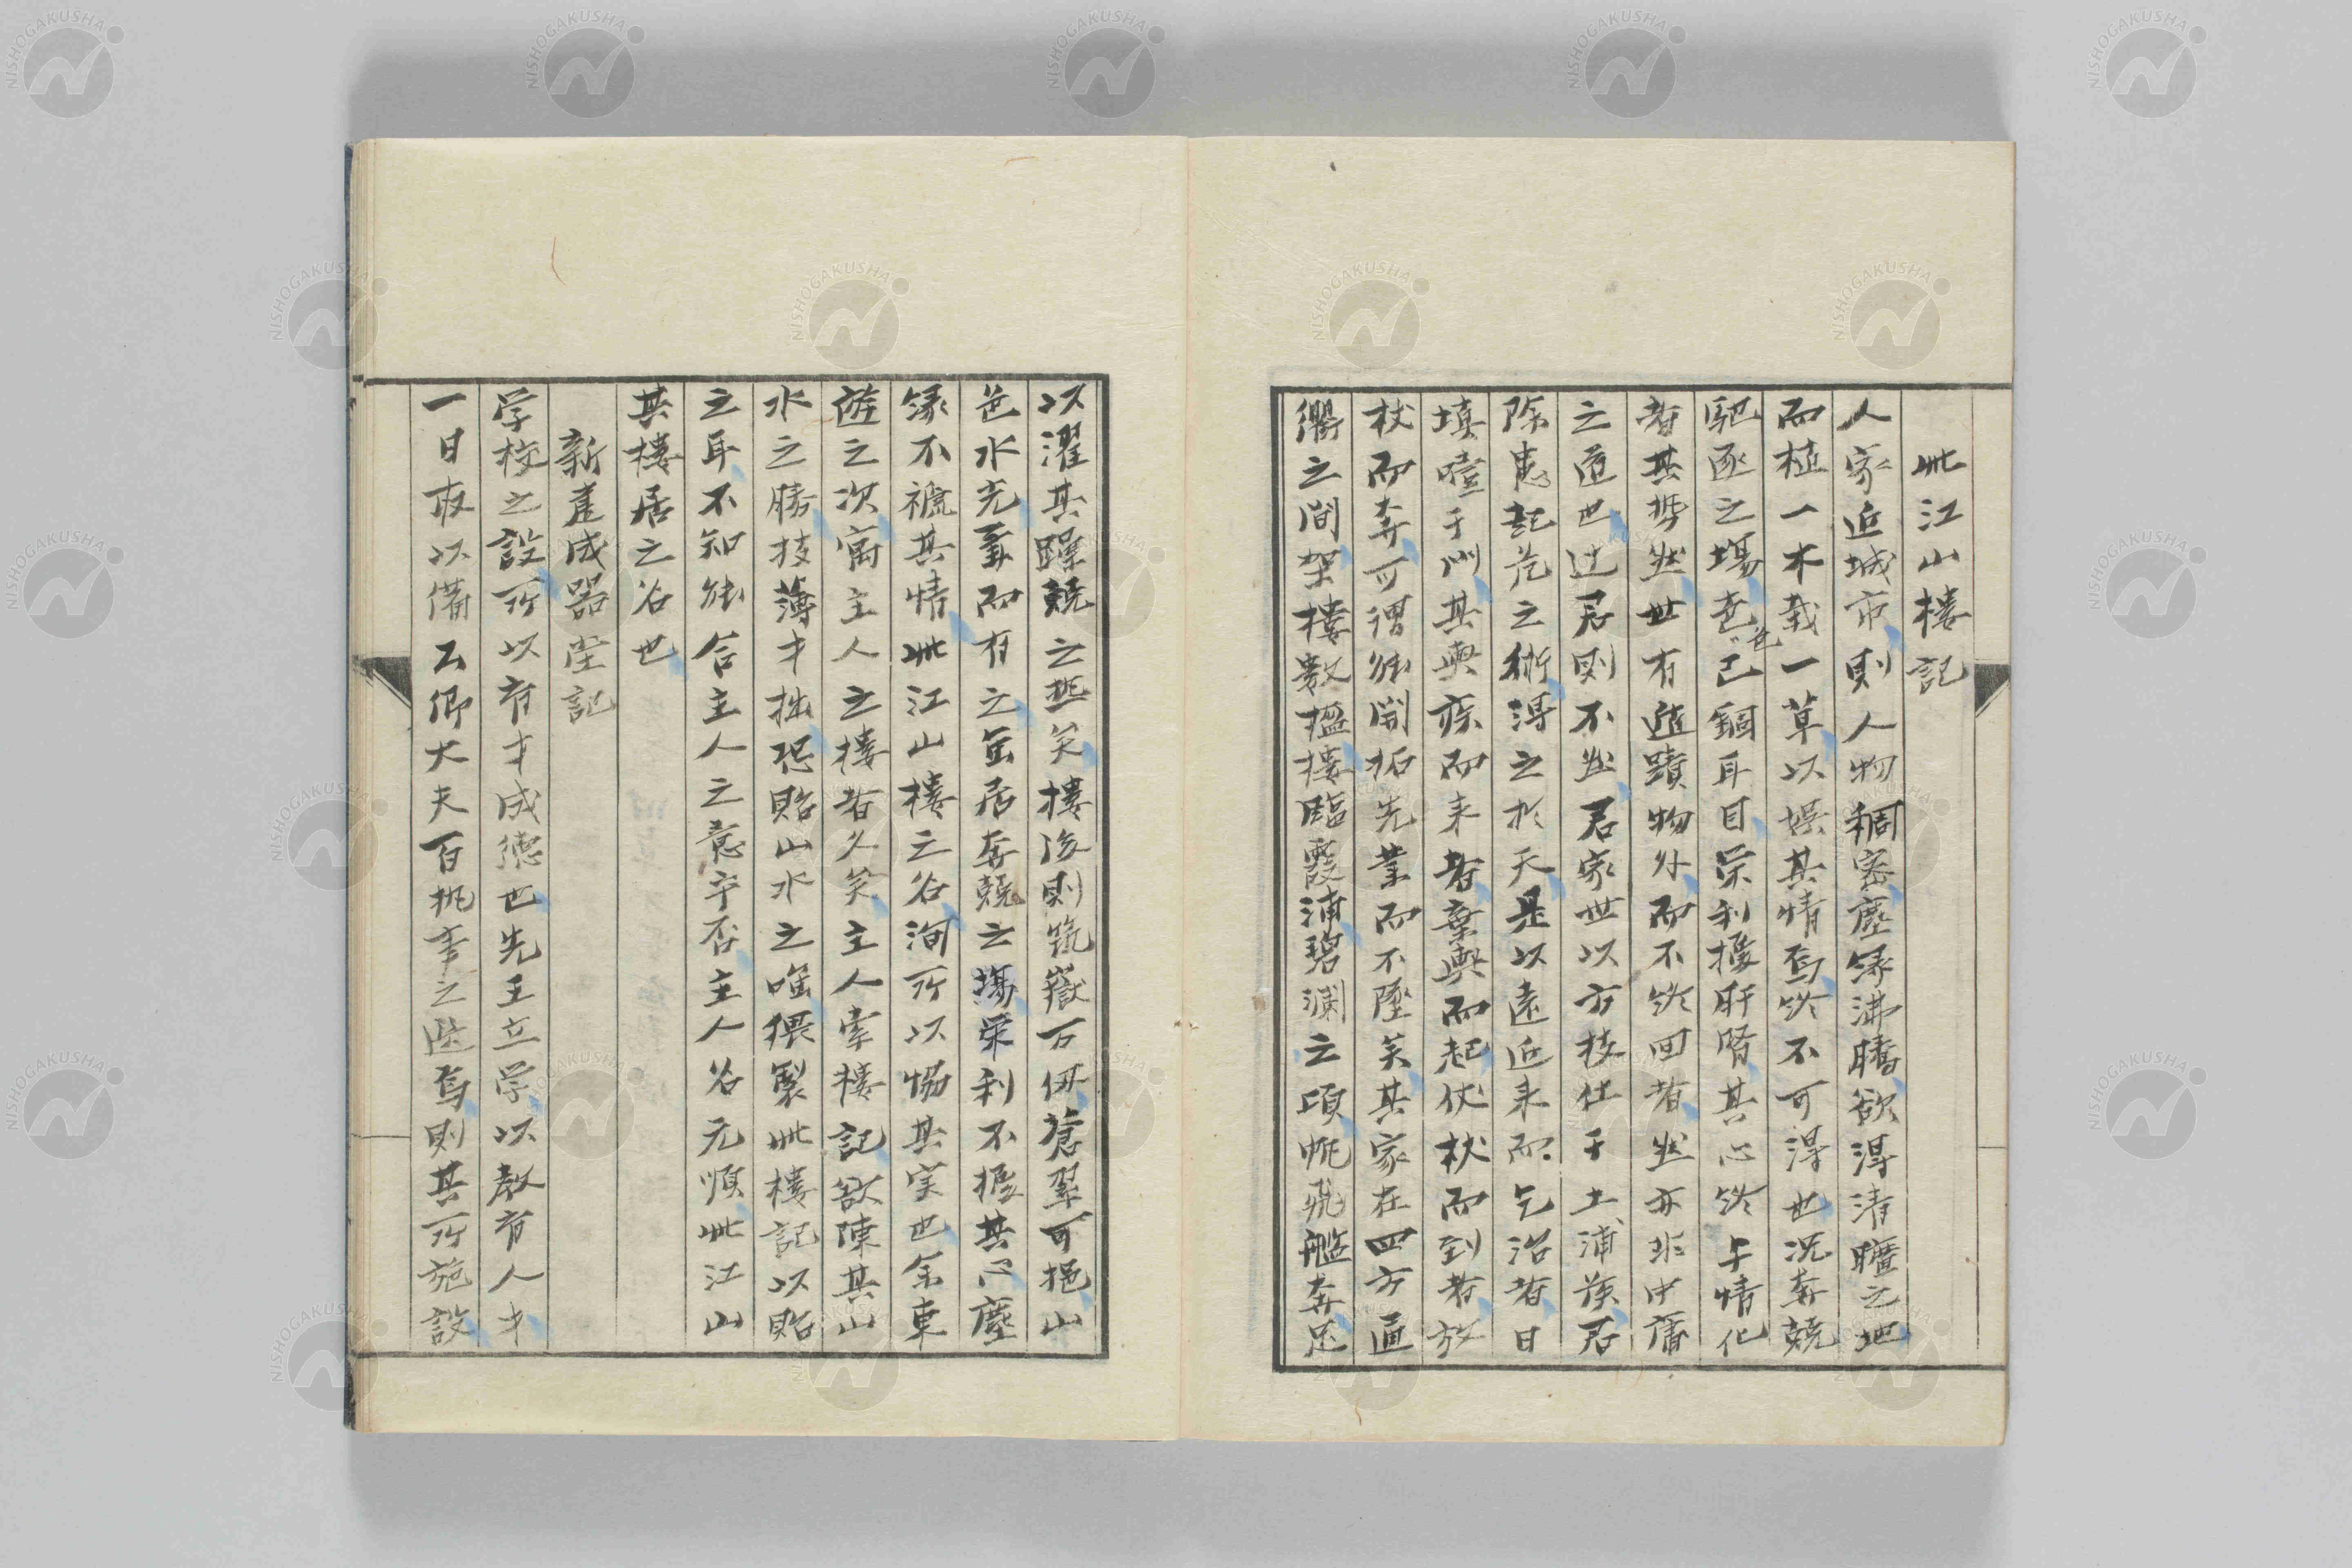 此江山樓記
人家近城市則人物稠密塵縁沸騰欲得清曠之地
而植一木栽一草以娯其情焉終不可得也況奔競
馳逐之場色已錮耳目栄利擾肝腎其心終与情化
者其勢然世有遁蹟物外而不終回者然亦非中庸
之道也辻君則不然君家世以方技仕于土浦族君
除患起危之術得之於天是以遠近来而乞治者日
填噎于門其輿痾而来者棄輿而起伏杖而到者放
杖而奔可謂能開拓先業而不墜矣其家在四方通
衢之間架樓数楹樓臨霞浦碧瀾之頃帆飛艦奔足
以濯其躁競之熱矣樓後則筑嶽万仞蒼翠可挹山
色水光聚而有之無居奔競之場栄利不擾其心塵
縁不褫其情此江山樓之名洵所以協其実也余東
遊之次寓主人之樓者久矣主人索樓記欲陳其山
水之勝技薄才拙恐貽山水之嗤猥製此樓記以貽
之耳不知能合主人之意乎否主人名元順此江山
其樓居之名也
新建成器堂記
学校之設所以育才成徳也先王立学以教育人才
一日取以備公卿大夫百執事之選焉則其所施設
NISHOGAKUSHA